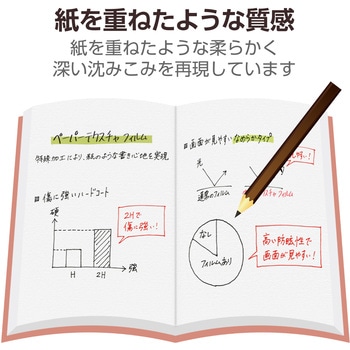 紙を重ねたような質感
紙を重ねたような柔らかく
深い沈みこみを再現しています
ペーパーテクスチャフィルム
特殊加工により、紙のような書き心地を実現
■傷に強いハードコート
硬
2Hで
傷に強い!
H
2H
強
■画面が見やすいなめらかタイプ
光
しい!
通常のフィルム
スチャフィルム
なし
フィルムあり
高い防眩性で
画面が見やすい!